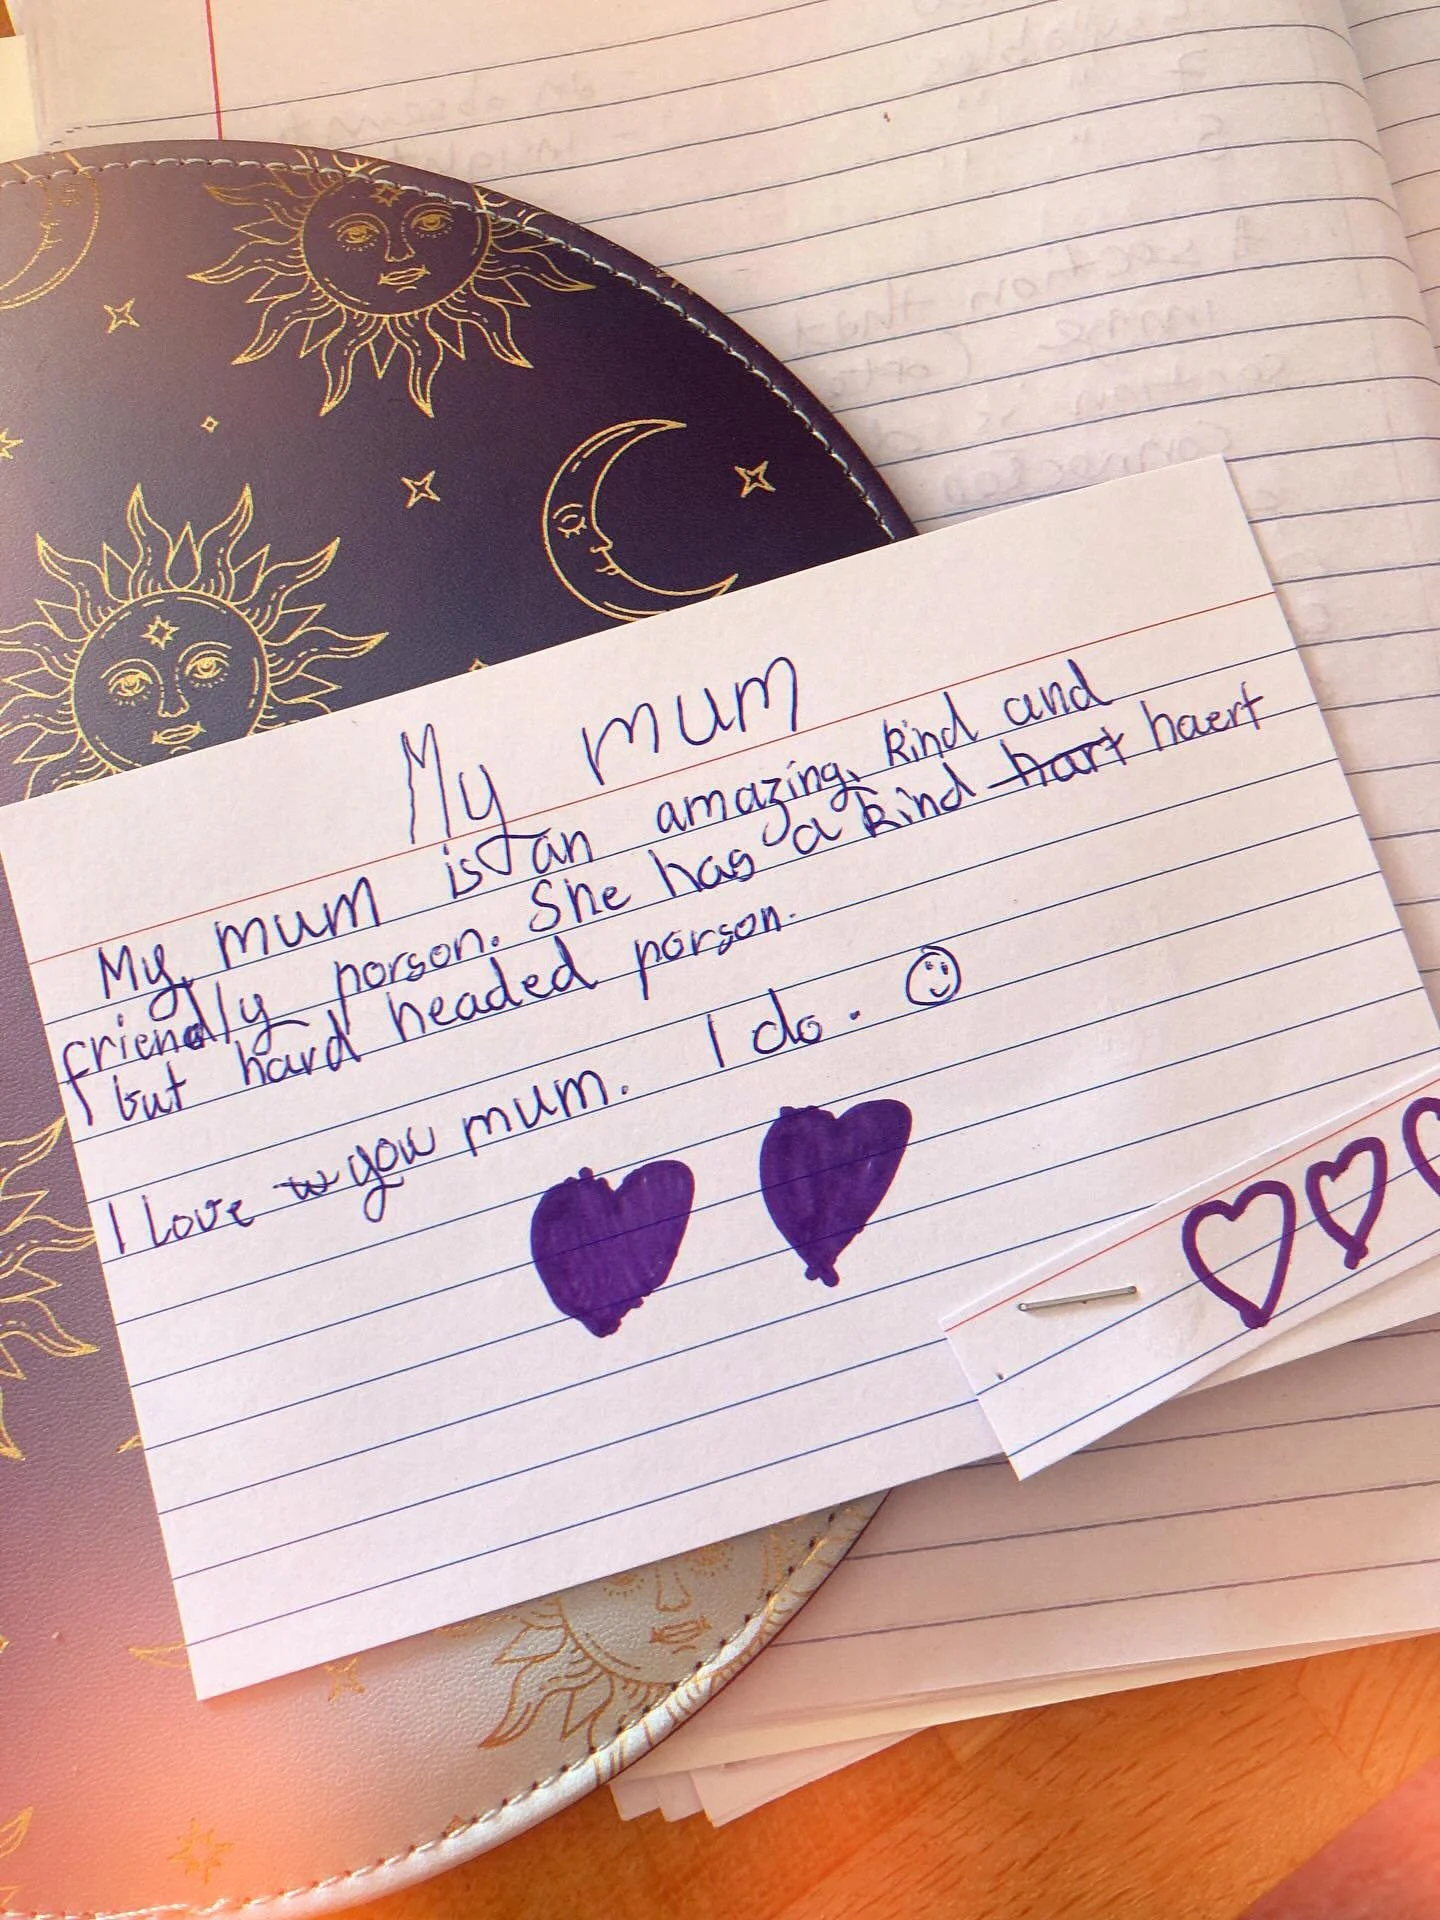 My mum
My mum is an amazing, kind and
friendly porson. She has a kind hart haert
but hard headed porson.
I love w you mum. I do.